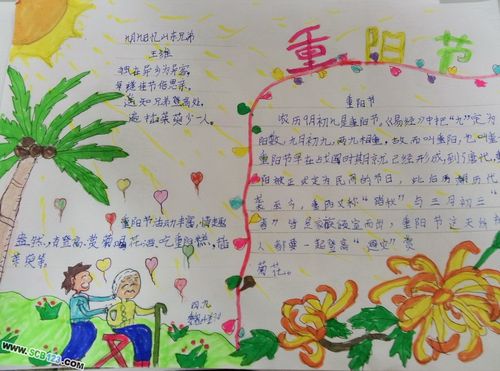 九月九日忆山东兄弟
王维
独在异乡为异客,
每逢佳节倍思亲,
遥知兄弟登高处,
遍插茱萸少一人。
重阳节活动丰富,情趣
盎然,有登高,赏菊,喝花酒,吃重阳糕,插
茱萸等。
四.九
重阳节
重阳节
农历九月初九是重阳节。《易经》中把“九”定为
阳数,九月初九,两九相重,故而叫重阳,也叫重
重阳节早在战国时期就已经形成,到了唐代,重
阳被正式定为民间的节日,此后历朝历代
至今,重阳又称“踏秋”与三月初三
“”皆是家族倾室而出,重阳节这天所
人都要一起登高“避灾”赏
菊花。
www.SCB123.com